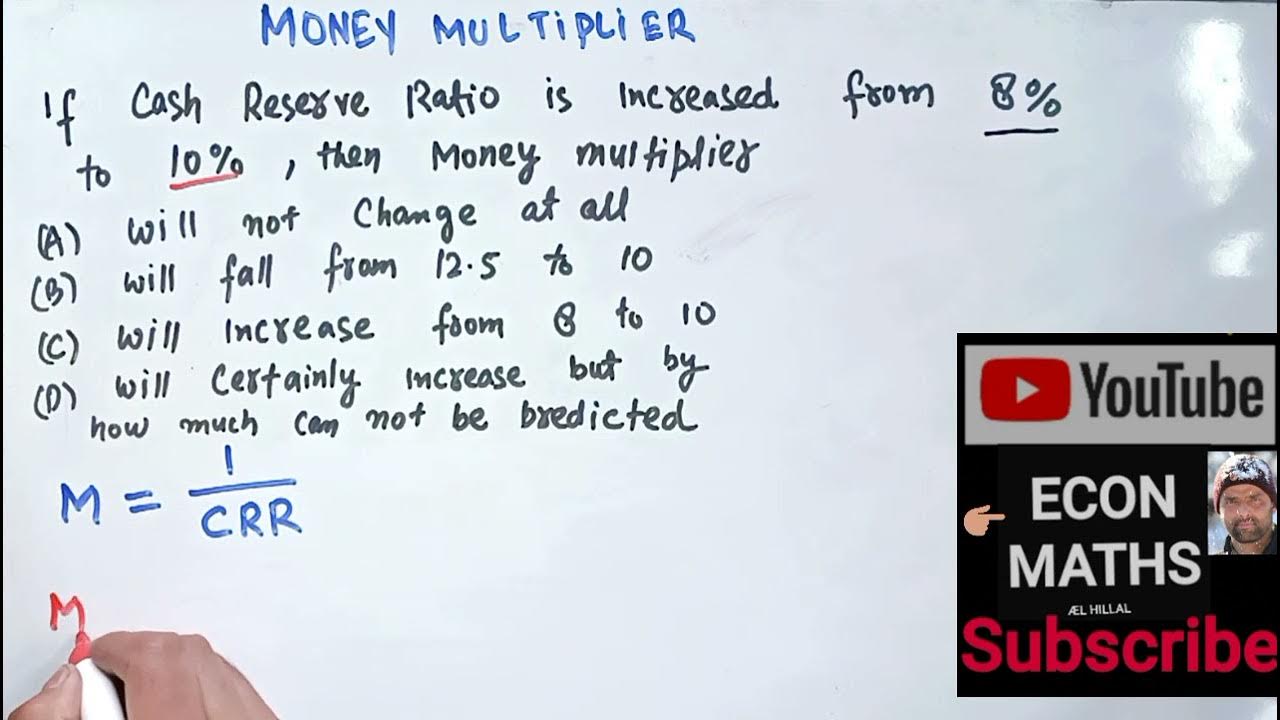 MONEY MULTIPLIER
If Cash Reserve Ratio is increased from 8%
to 10%, then Money multiplier
(A) will not Change at all
(B) will fall from 12.5 to 10
(C) will increase from 8 to 10
(D) will Certainly increase but by
how much can not be bredicted
M = 1/CRR
M
YouTube
ECON
MATHS
ÆL HILLAL
Subscribe